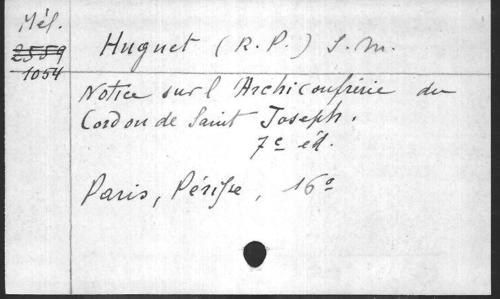 Mél.
2559
1054
Huguet (R. P.) S. M.
Notice sur l'Archiconfrérie du
Cordon de Saint Joseph.
7e éd.
Paris, Périsse, 16°